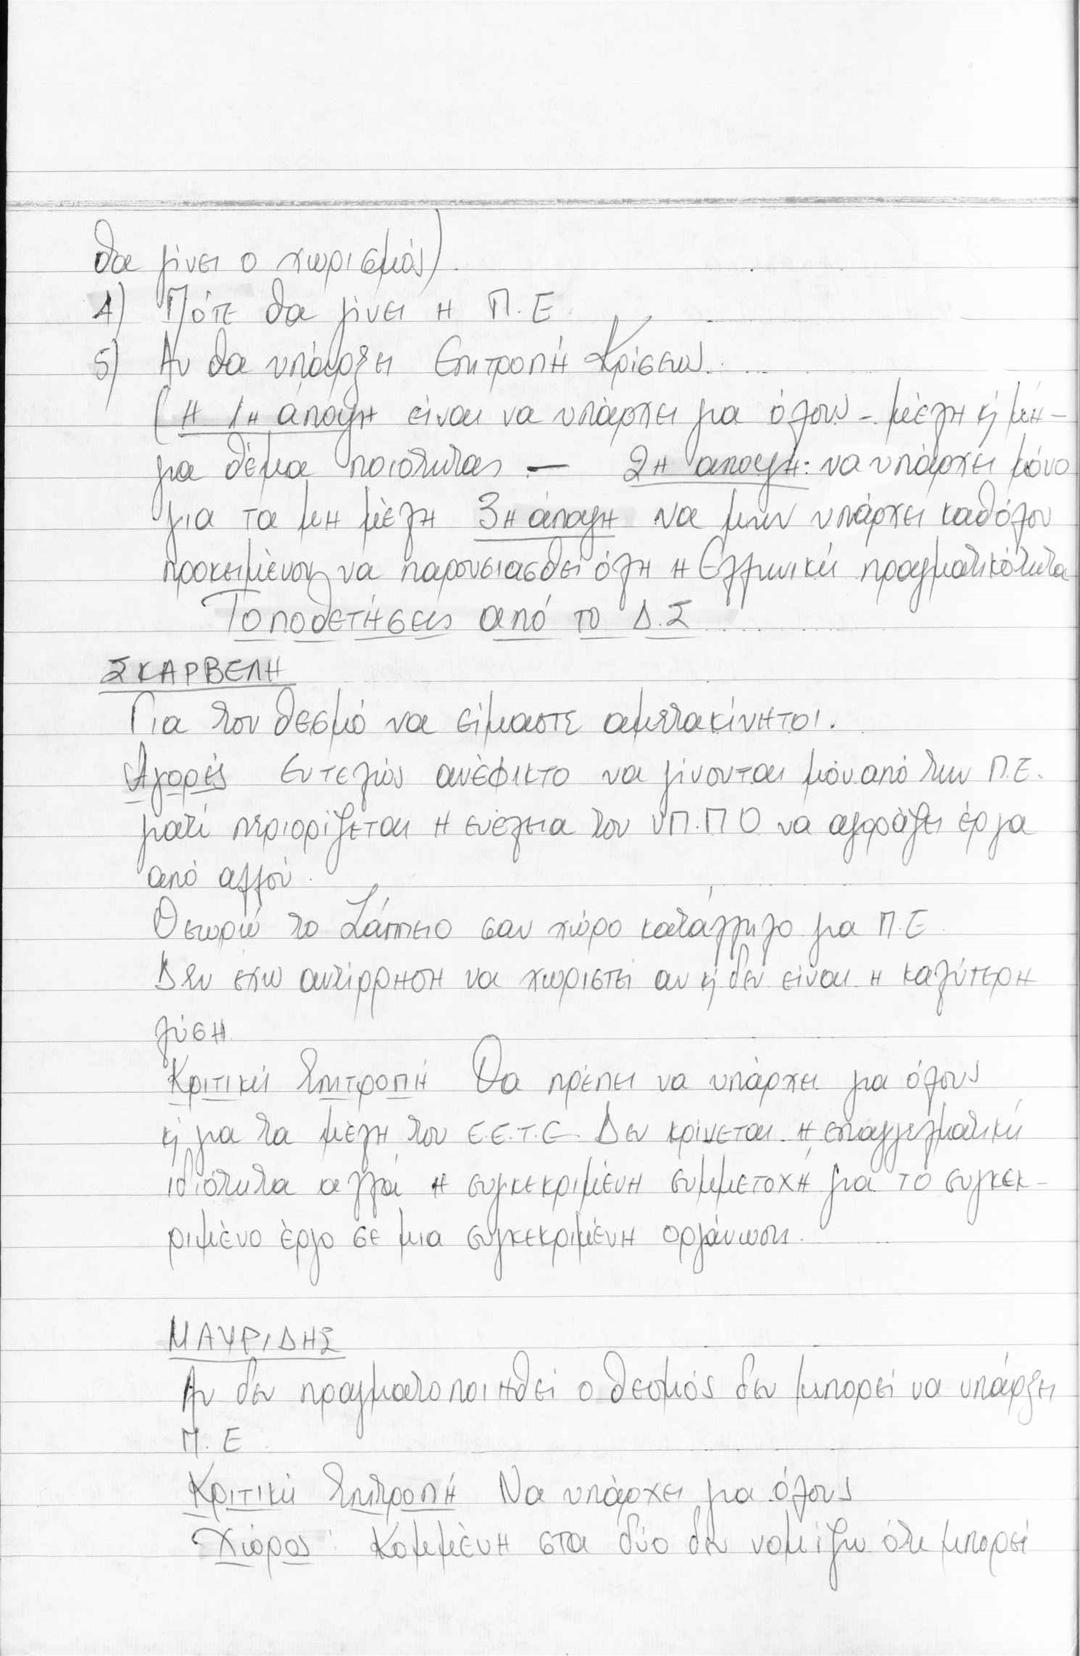 θα γίνει ο χωρισμός)
4) Πότε θα γίνει η Π.Ε
5) Αν θα υπάρξει Επιτροπή Κρίσεων.
(η 1η άποψη είναι να υπάρχει για όλους - μέλη κ' μη -
για θέμα ποιότητας - 2η άποψη: να υπάρχει μόνο
για τα μη μέλη 3η άποψη να μην υπάρχει καθόλου
προκειμένου να παρουσιασθεί όλη η Ελληνική πραγματικότητα
Τοποθετήσεις από το Δ.Σ
ΣΚΑΡΒΕΛΗ
Για τον θεσμό να είμαστε αμετακίνητοι.
Αγορές Εντελώς ανέφικτο να γίνονται μόν από την Π.Ε.
γιατί περιορίζεται η ευέλεια του ΥΠ.ΠΟ να αγοράζει έργα
από αλλού.
Θεωρώ το Ζάππειο σαν χώρο κατάλληλο για Π.Ε
Δεν έχω αντίρρηση να χωριστεί αν κ' δεν είναι η καλύτερη
λύση
Κριτική Επιτροπή Θα πρέπει να υπάρχει για όλους
κ' για τα μέλη του Ε.Ε.Τ.Ε. Δεν κρίνεται η επαγγελματική
ιδιότητα αλλά η συγκεκριμένη συμμετοχή για το συγκεκ-
ριμένο έργο σε μια συγκεκριμένη οργάνωση.
ΜΑΥΡΙΔΗΣ
Αν δεν πραγματοποιηθεί ο θεσμός δεν μπορεί να υπάρξει
Π.Ε
Κριτική Επιτροπή Να υπάρχει για όλους
Χώρος: Κομμένη στα δύο δεν νομίζω ότι μπορεί